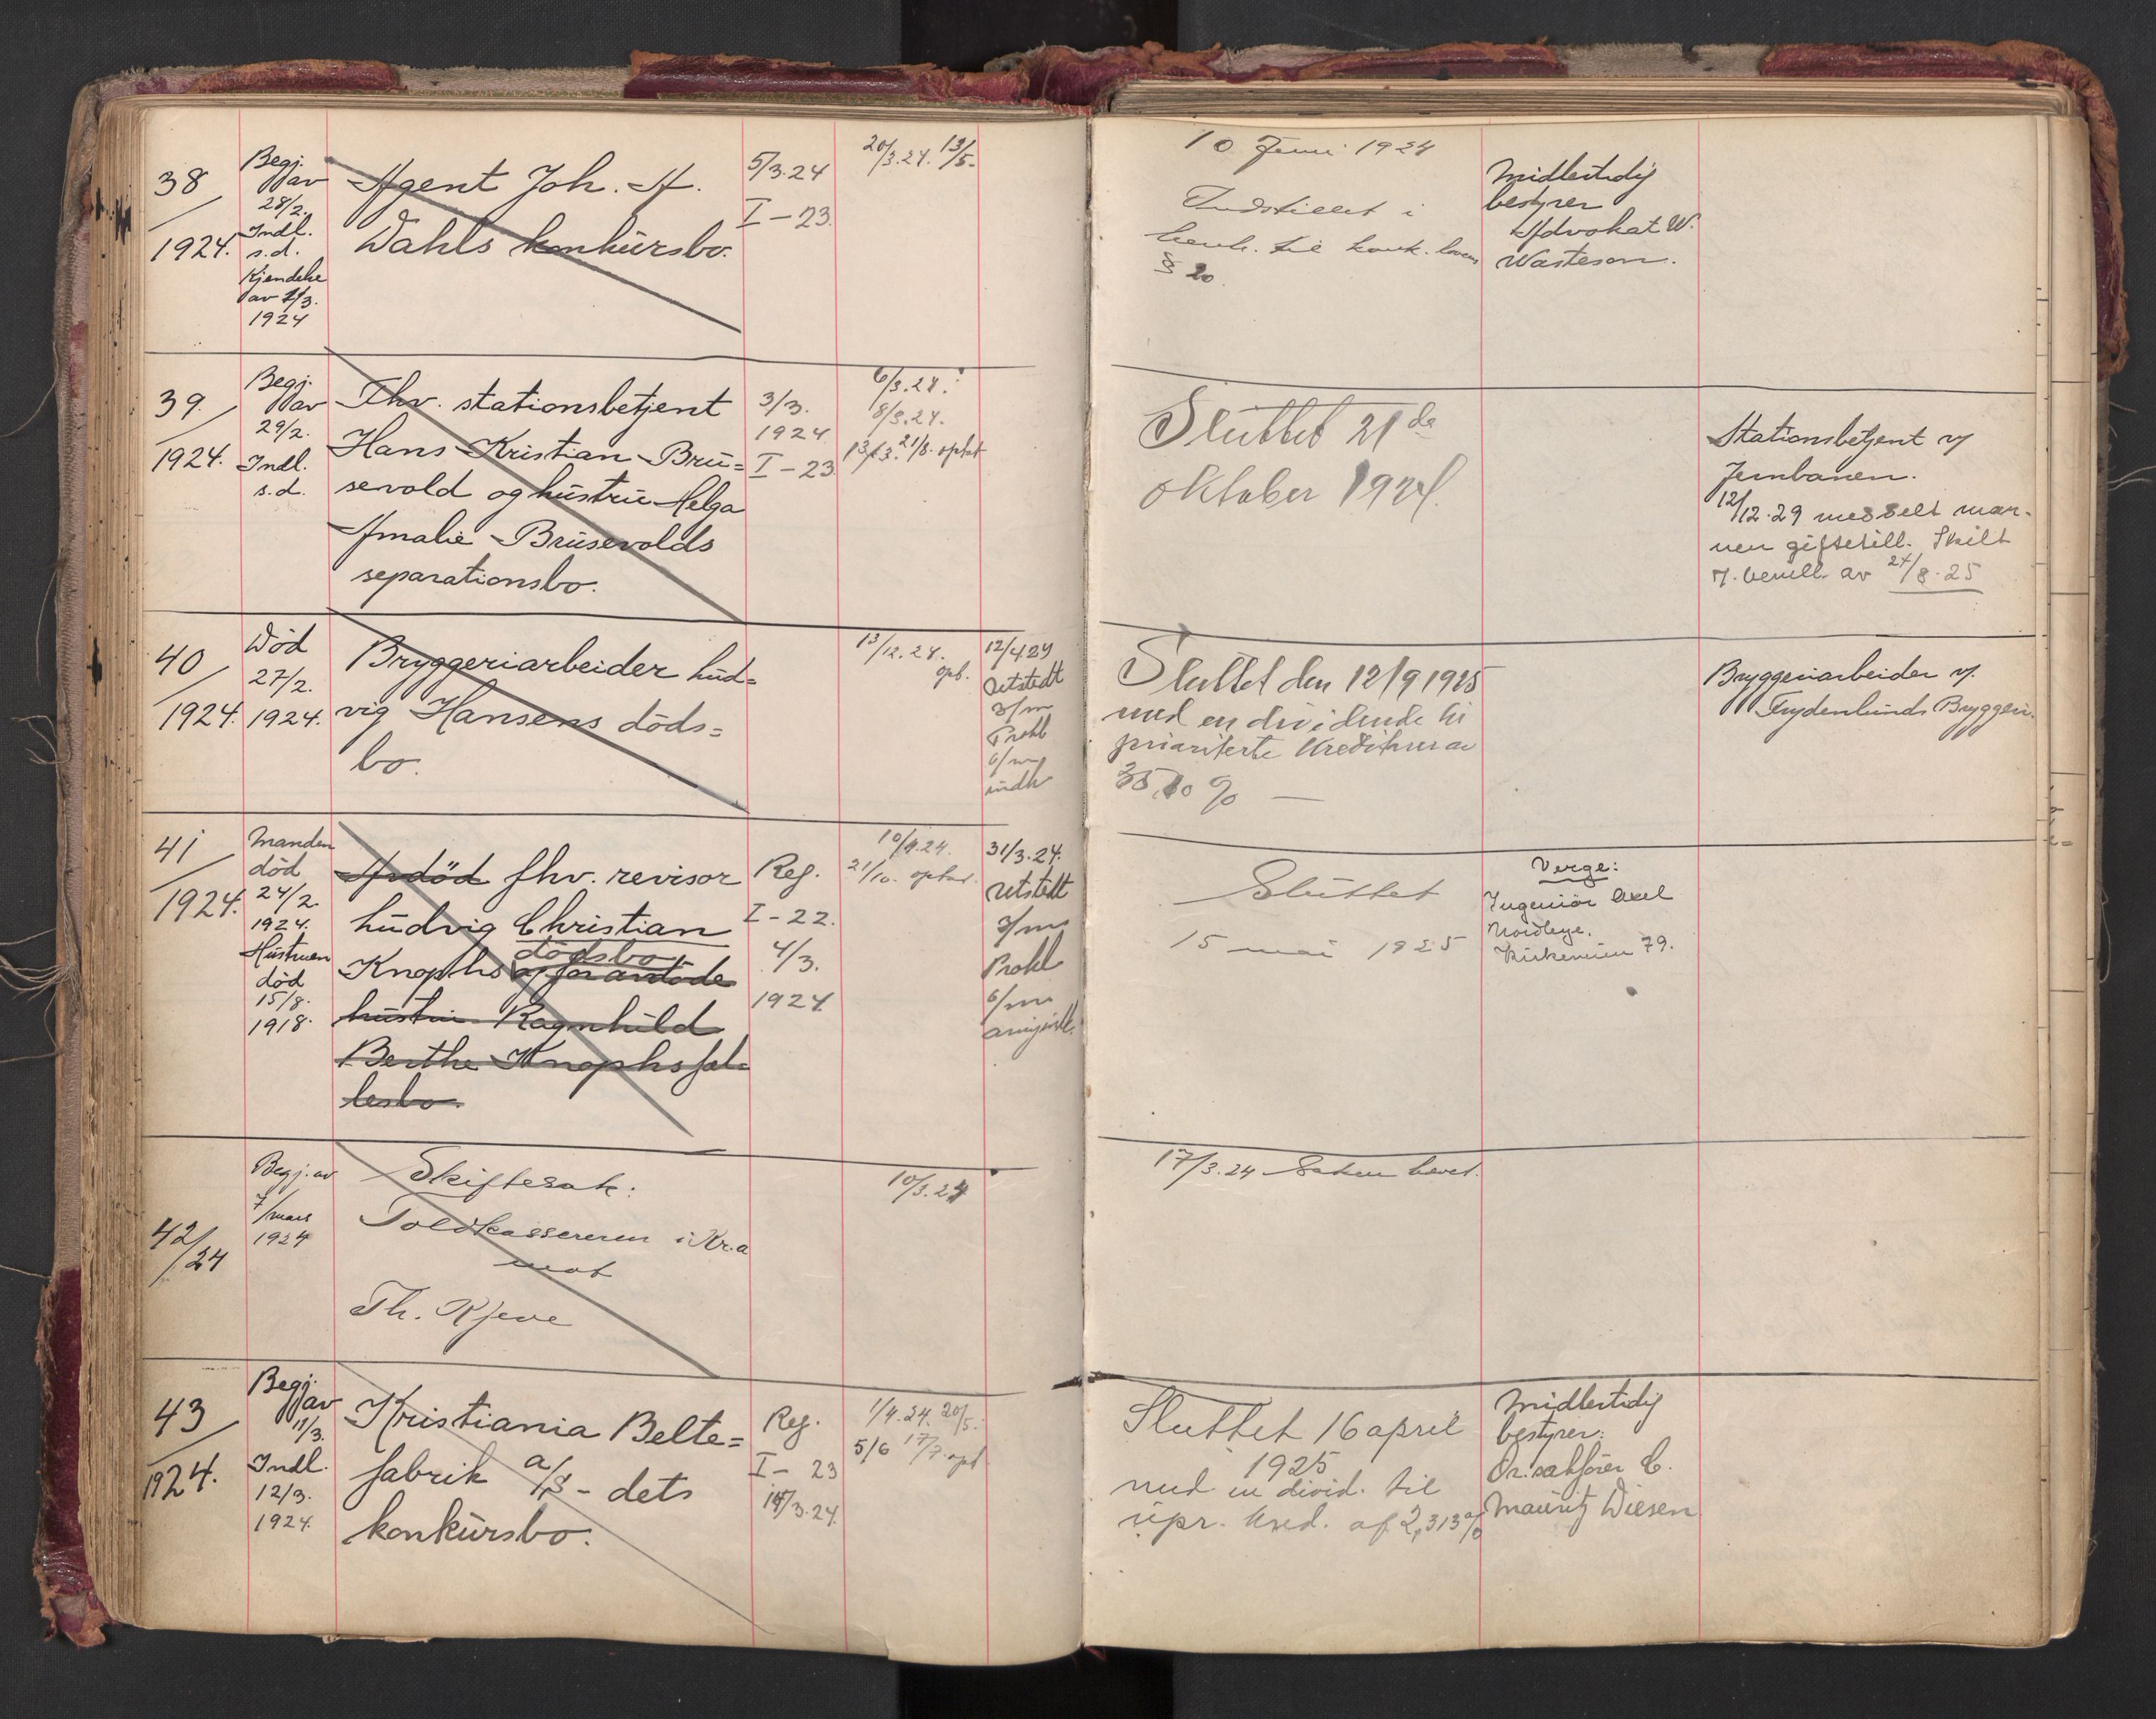 38
1924.
Begj.
av
28/2.
Indl.
s.d.
Kjendelse
av 1/3.
1924
Agent Joh. A.
Wahls konkursbo.
5/3.24
I - 23.
20/3.24. 13/5.
10 Juni 1924
Indstillet i
henh. til konk. lovens
§ 20.
Midlertidig
bestyrer
Advokat W.
Wasteson.
39.
1924.
Begj.
av
29/2.
Indl.
s.d.
Fhv. stationsbetjent
Hans Kristian Bru=
sevold og hustru Helga
Amalie Brusevolds
separationsbo.
3/3.
1924
I - 23
6/3.24.
8/3.24.
13/3. 21/8. optat
Sluttet 21de
oktober 1924.
Stationsbetjent v/
Jernbanen.
12/12.29 meddelt man-
nen giftetill. Skilt
v. bevill. av 27/8.25
40
1924.
Død
27/2.
1924.
Bryggeriarbeider Lud=
vig Hansens døds=
bo.
13/12.24.
opb.
12/4 29
Utstedt
3/m
Prokl
6/m
indk
Sluttet den 12/9 1925
med en dividende til
prioriterte kreditorer av
35,10 %
Bryggeriarbeider v.
Frydenlunds Bryggeri.
41
1924.
Manden
død
24/2.
1924.
Hustruen
død
15/8.
1918.
Avdød fhv. revisor
Ludvig Christian
dødsbo
Knophs og foravdøde
hustru Ragnhild
Berthe Knophs fæl=
lesbo.
Reg.
I - 22.
4/3.
1924
10/4.24.
21/10. optat.
31/3.24.
Utstedt
3/m
Prokl
6/m
Sluttet
15 mai 1925
Verge:
Ingeniør Axel
Kirkeveien 79.
42/24
Begj. av
7/mars
1924
Skiftesak:
Toldkassereren i Kr.a
mot
Th. Kjeve
10/3.24
17/3.24 Saken hævet.
43
1924.
Begj.
av
11/3.
Indl.
12/3.
1924.
Kristiania Belte=
fabrik a/s - dets
konkursbo.
Reg.
I - 23
14/3.24.
1/4.24. 20/5.
5/6 17/7 opt
Sluttet 16 april
1925
med en divid. til
upr. kred. af 2,313%
Midlertidig
bestyrer:
Or.sakfører C.
Mauritz Diesen